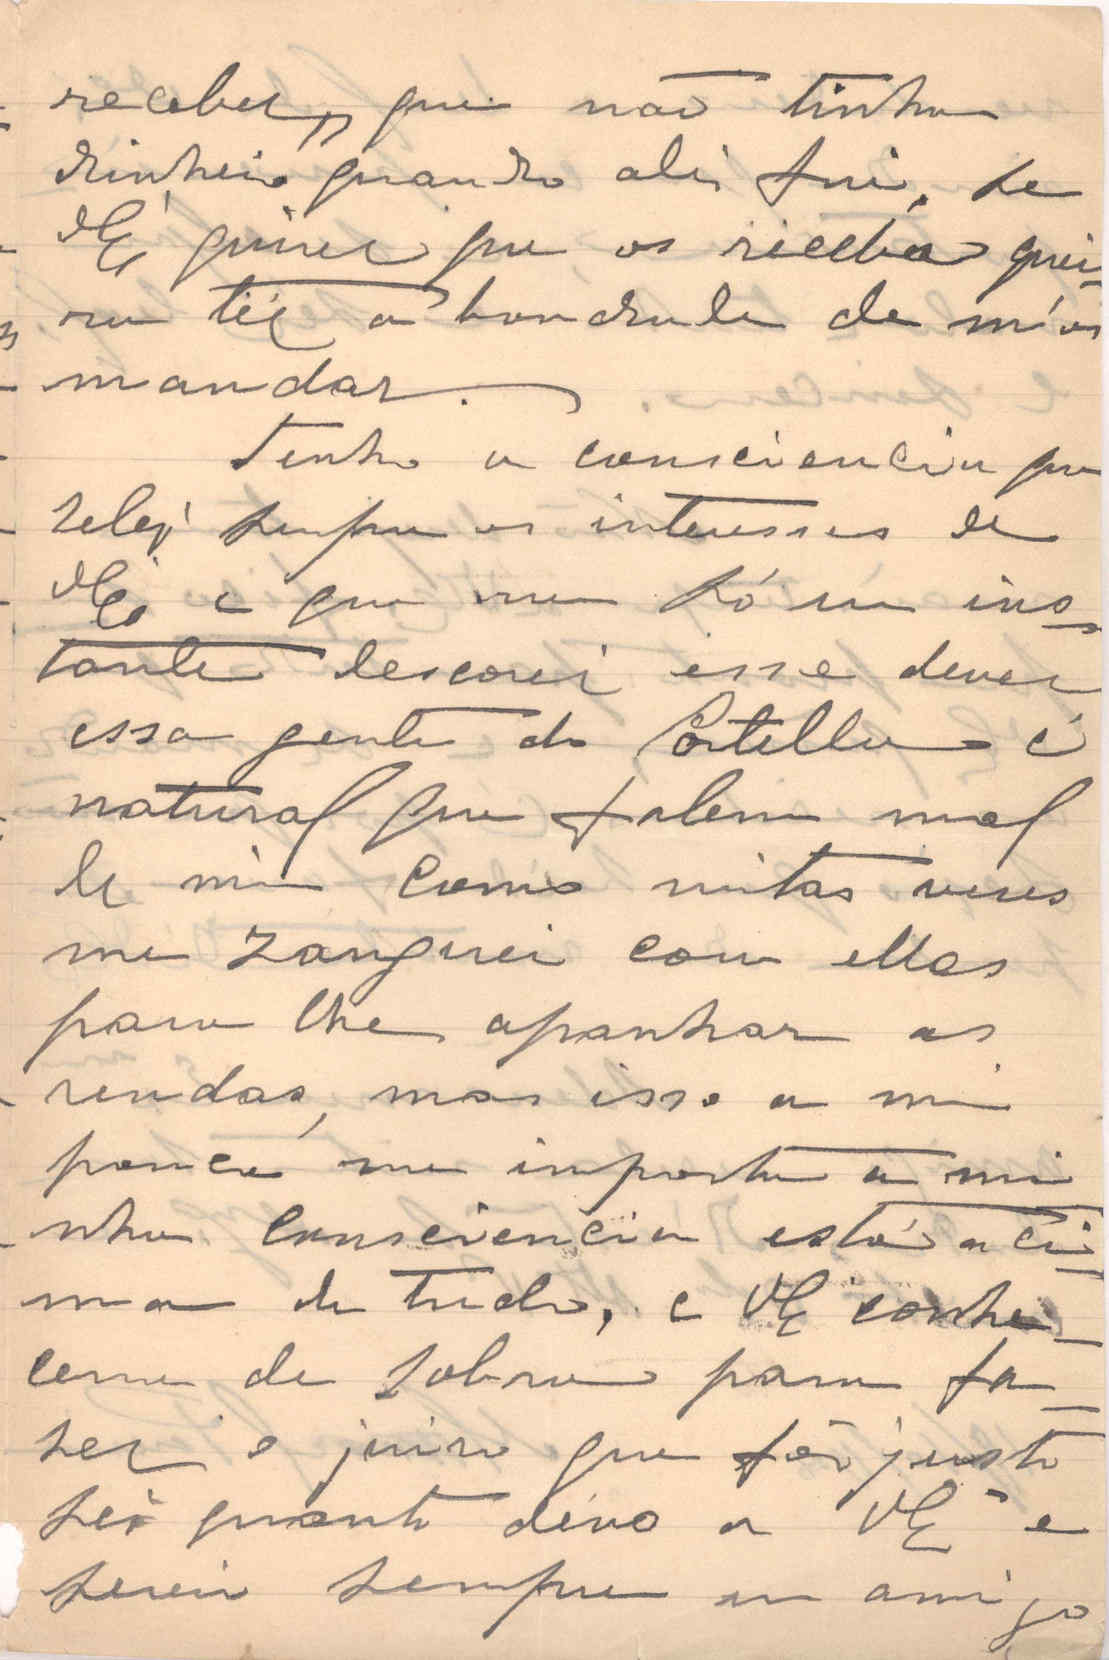 receber, que não tinha
dinheiro quando ali fui, se
VEª quizer que os receba quei-
ra ter a bondade de m'os
mandar.
Tenho a consciencia que
zelei sempre os interesses de
VEª e que nem só um ins-
tante descorei esse dever
essa gente do Portella é
natural que falem mal
de mim como muitas vezes
me zanguei com ellas
para lhe apanhar as
rendas, mas isso a mi
pouco me importa a mi
nha consciencia está aci-
ma de tudo, e VE conhe-
ceme de sobra para fa-
zer o juizo que fôr justo
sei quanto devo a VEª e
serei sempre um amigo